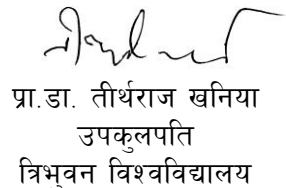 प्रा.डा. तीर्थराज खनिया
उपकुलपति
त्रिभुवन विश्वविद्यालय